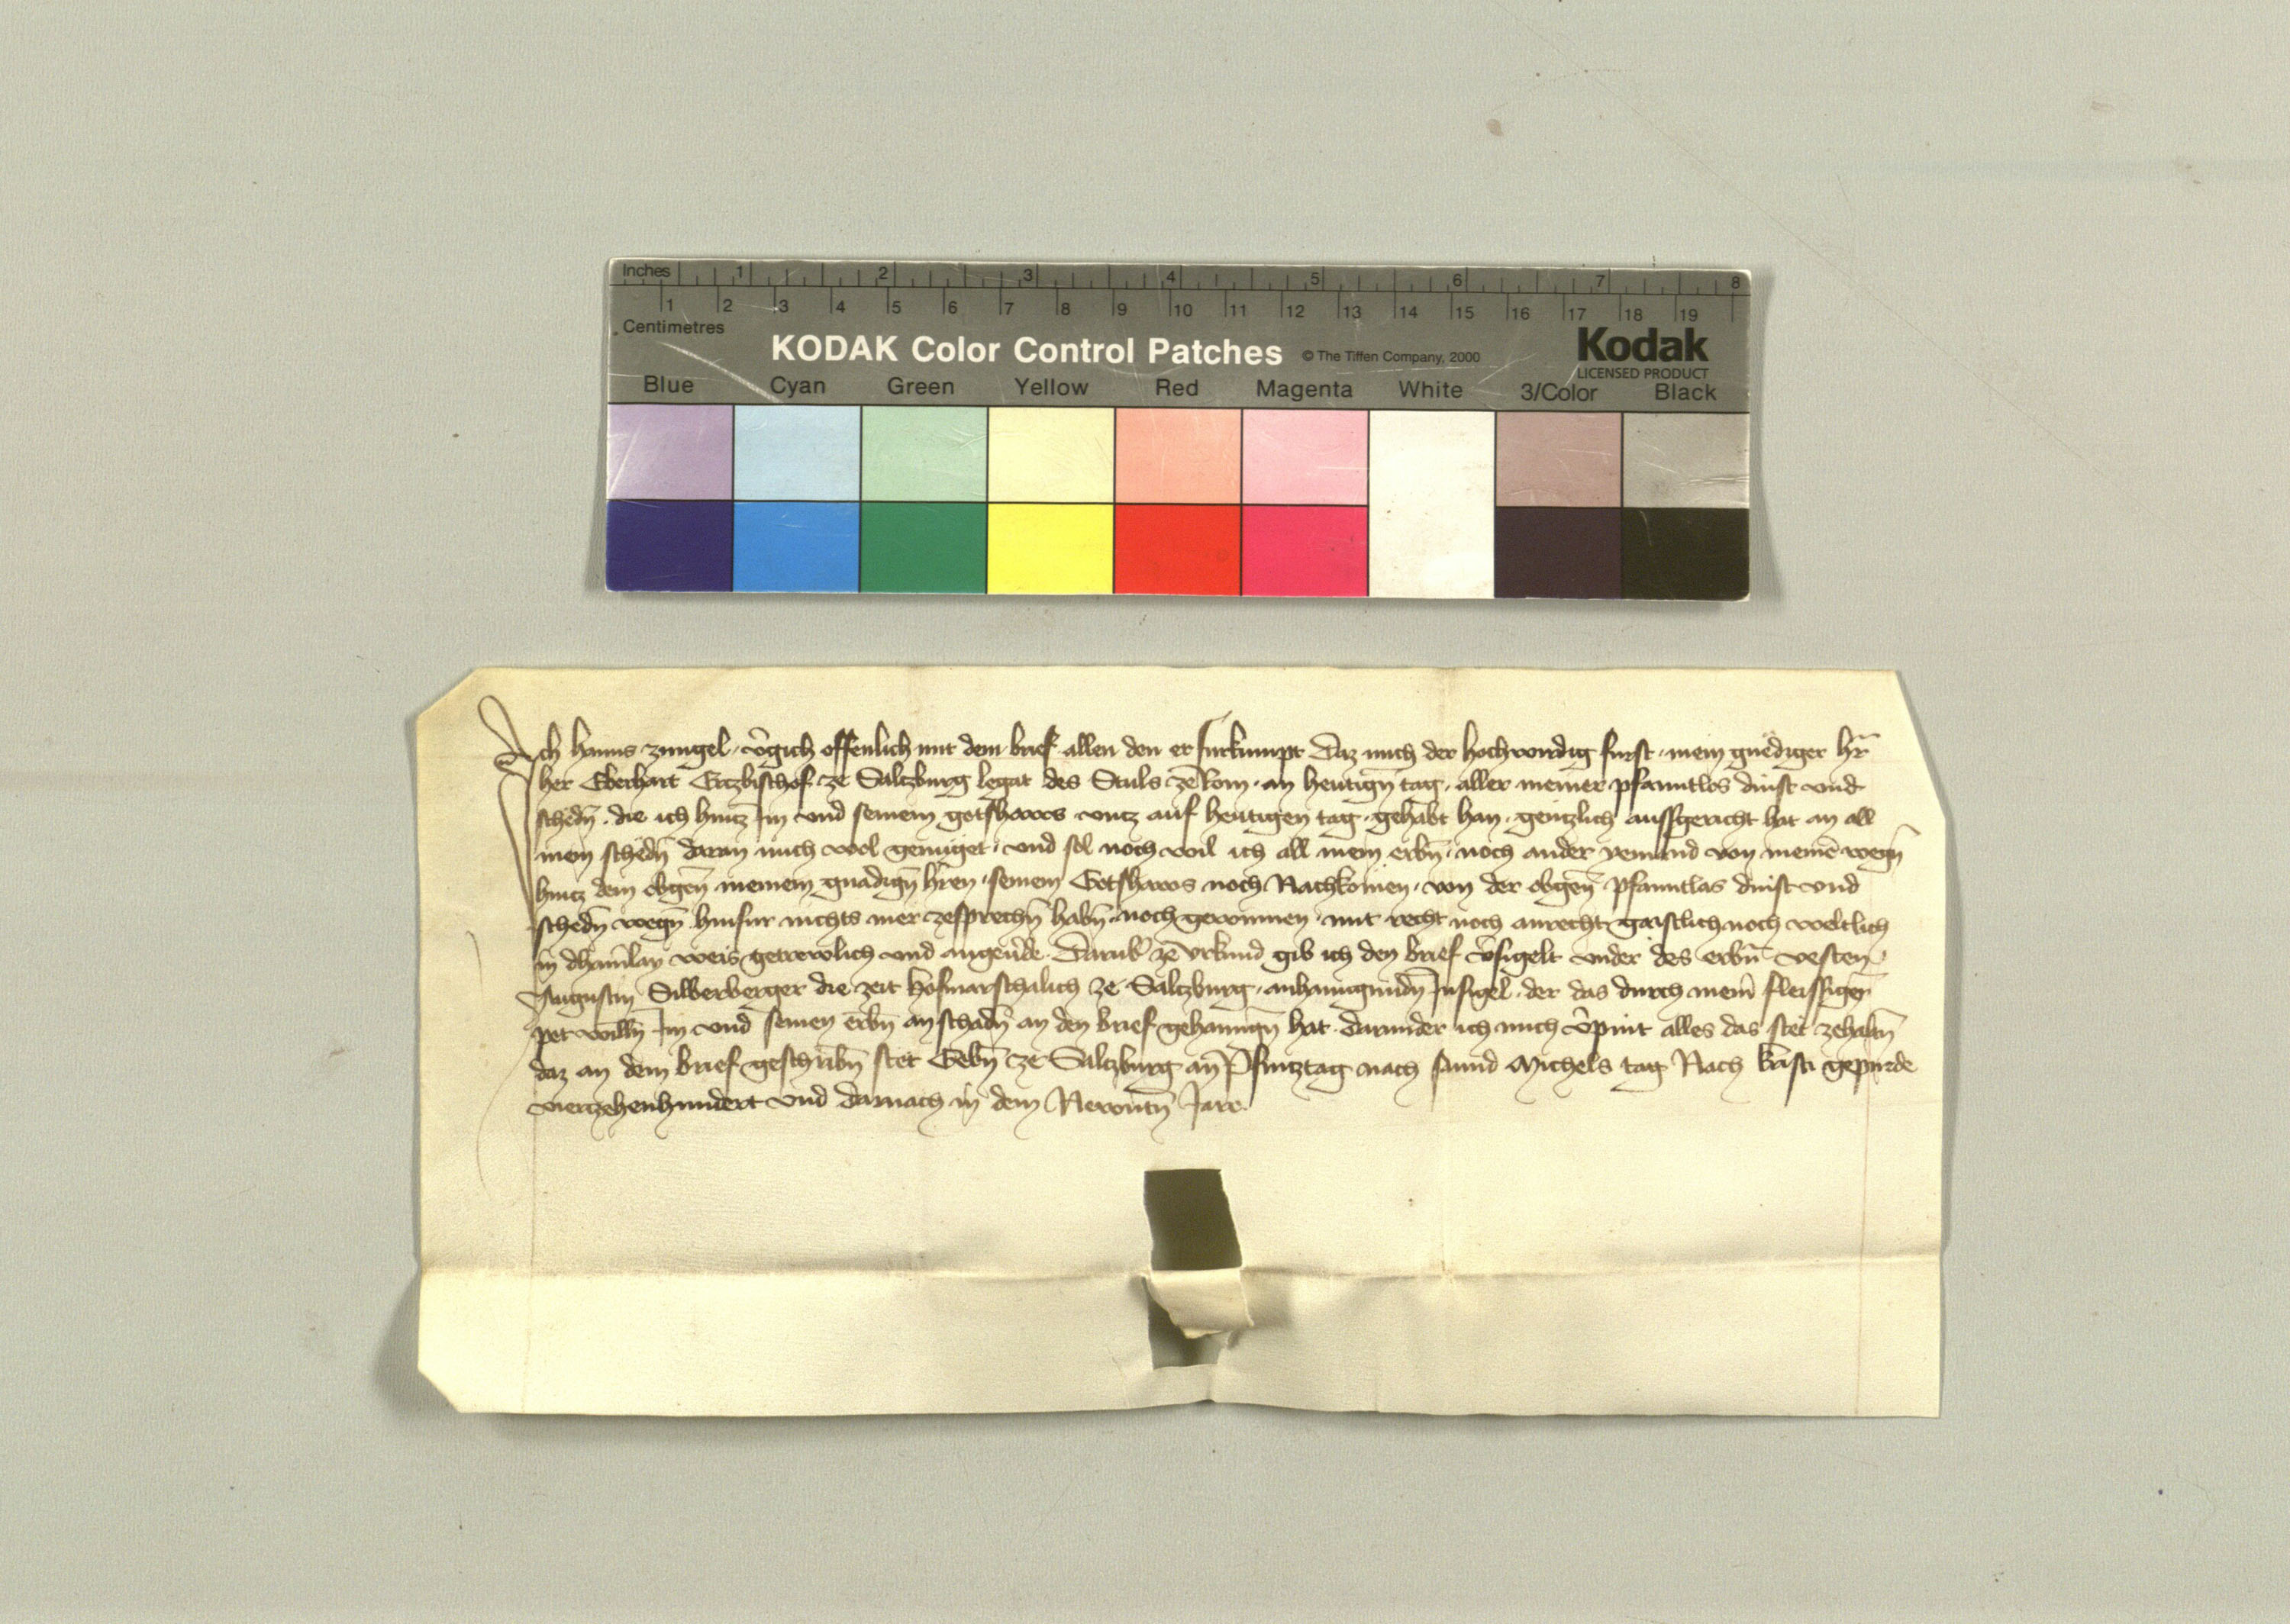 Inches 1 2 3 4 5 6 7 8
1 2 3 4 5 6 7 8 9 10 11 12 13 14 15 16 17 18 19
Centimetres
KODAK Color Control Patches © The Tiffen Company, 2000 Kodak
LICENSED PRODUCT
Blue Cyan Green Yellow Red Magenta White 3/Color Black
Ich Hanns Zungel v̄gich offenlich mit dem brief allen den er furkumpt Daz mich der hochwirdig furst mein gnediger hr̄
her Eberhart Ertzbischof ze Saltzburg legat des Stuls ze Rom an heutign̄ tag aller meiner pfanntlos dinst und
schedn̄ die ich hintz Im und seinem gotshaws untz auf heutigen tag gehabt han gentzlich aussgericht hat an all
mein schedn̄ daran mich wol genuget und sol noch wil ich all mein erbn̄ noch ander yemand von meinē wegn̄
hintz dem obgen̄ meinem gnadign̄ hr̄en seinem Gotshaws noch Nachkomen von der obgen̄ pfanntlas dinst und
schedn̄ wegn̄ hinfur nichts mer zesprechn̄ habn̄ noch gewinnen mit recht noch anrecht gaistlich noch weltlich
in dhainlay weis getrewlich und angeu̇de Darub̄ ze urkund gib ich den brief v̄sigelt under des erbn̄ vesten
Augustin Silberberger die zeit Hofmarschalich ze Saltzburg anhangundn̄ Insigel der das durch meiñ fleissigen̄
pet willn̄ Im und seinen erbn̄ an schadn̄ an den brief gehanngn̄ hat darunder ich mich v̄pint alles das stet zehaltn̄
daz an dem brief geschribn̄ stet Gebn̄ ze Saltzburg an Pfintztag nach sannd Michels tag Nach kristi gepurde
viertzehenhundert und darnach in dem Newntn̄ Jare.